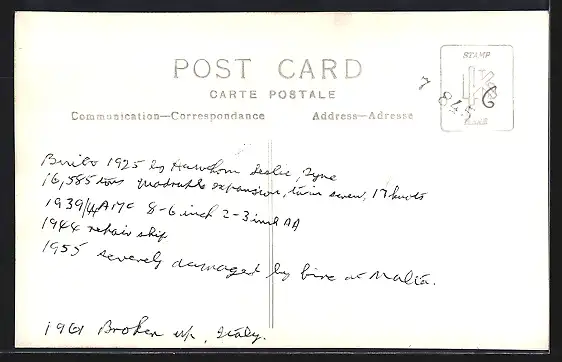 POST CARD
CARTE POSTALE
Communication—Correspondance
Address—Adresse
STAMP
7 845 6
Built 1925 by Hawthorn Leslie, Tyne
16,585 tons quadruple expansion, twin screw, 17 knots
1939/44 AMC 8-6 inch 2-3 inch AA
1944 repair ship
1955 severely damaged by fire at Malta.
1961 Broken up, Italy.